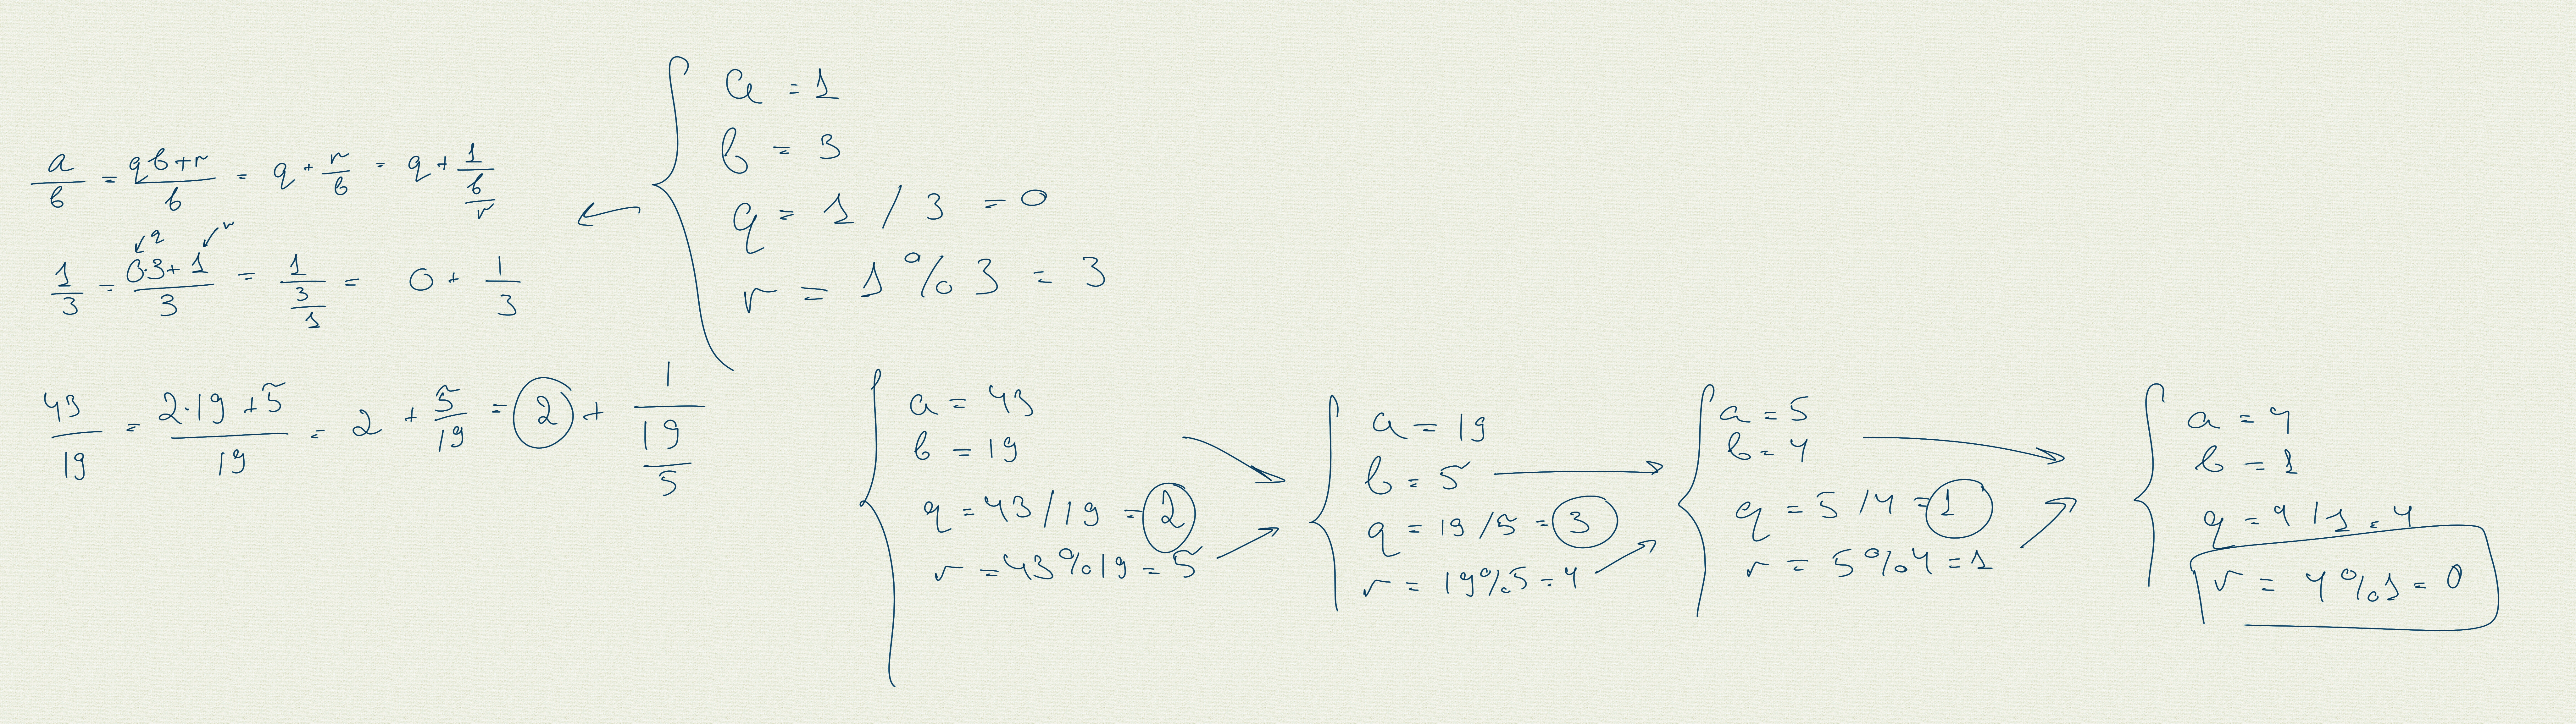 a/b = qb+r/b = q + r/b = q + 1/(b/r)
q r
1/3 = 0·3+1/3 = 1/(3/1) = 0 + 1/3
43/19 = 2·19+5/19 = 2 + 5/19 = 2 + 1/(19/5)
a = 1
b = 3
q = 1 / 3 = 0
r = 1 % 3 = 3
a = 43
b = 19
q = 43/19 = 2
r = 43%19 = 5
a = 19
b = 5
q = 19/5 = 3
r = 19%5 = 4
a = 5
b = 4
q = 5/4 = 1
r = 5%4 = 1
a = 4
b = 1
q = 4/1 = 4
r = 4%1 = 0